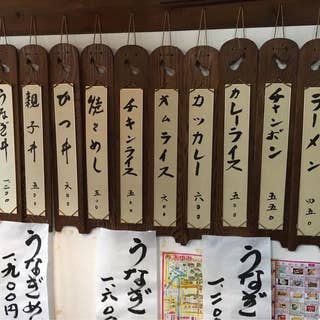 ラーメン 四五〇
チャンポン 五五〇
カレーライス 五〇〇
カツカレー 六〇〇
オムライス 六〇〇
チキンライス 五五〇
焼きめし 五〇〇
かつ丼 六〇〇
親子丼 五〇〇
うなぎ丼 一二〇〇
うなぎ 一、二〇〇
うなぎ 一、六〇〇
うなぎめ 一、九〇〇円